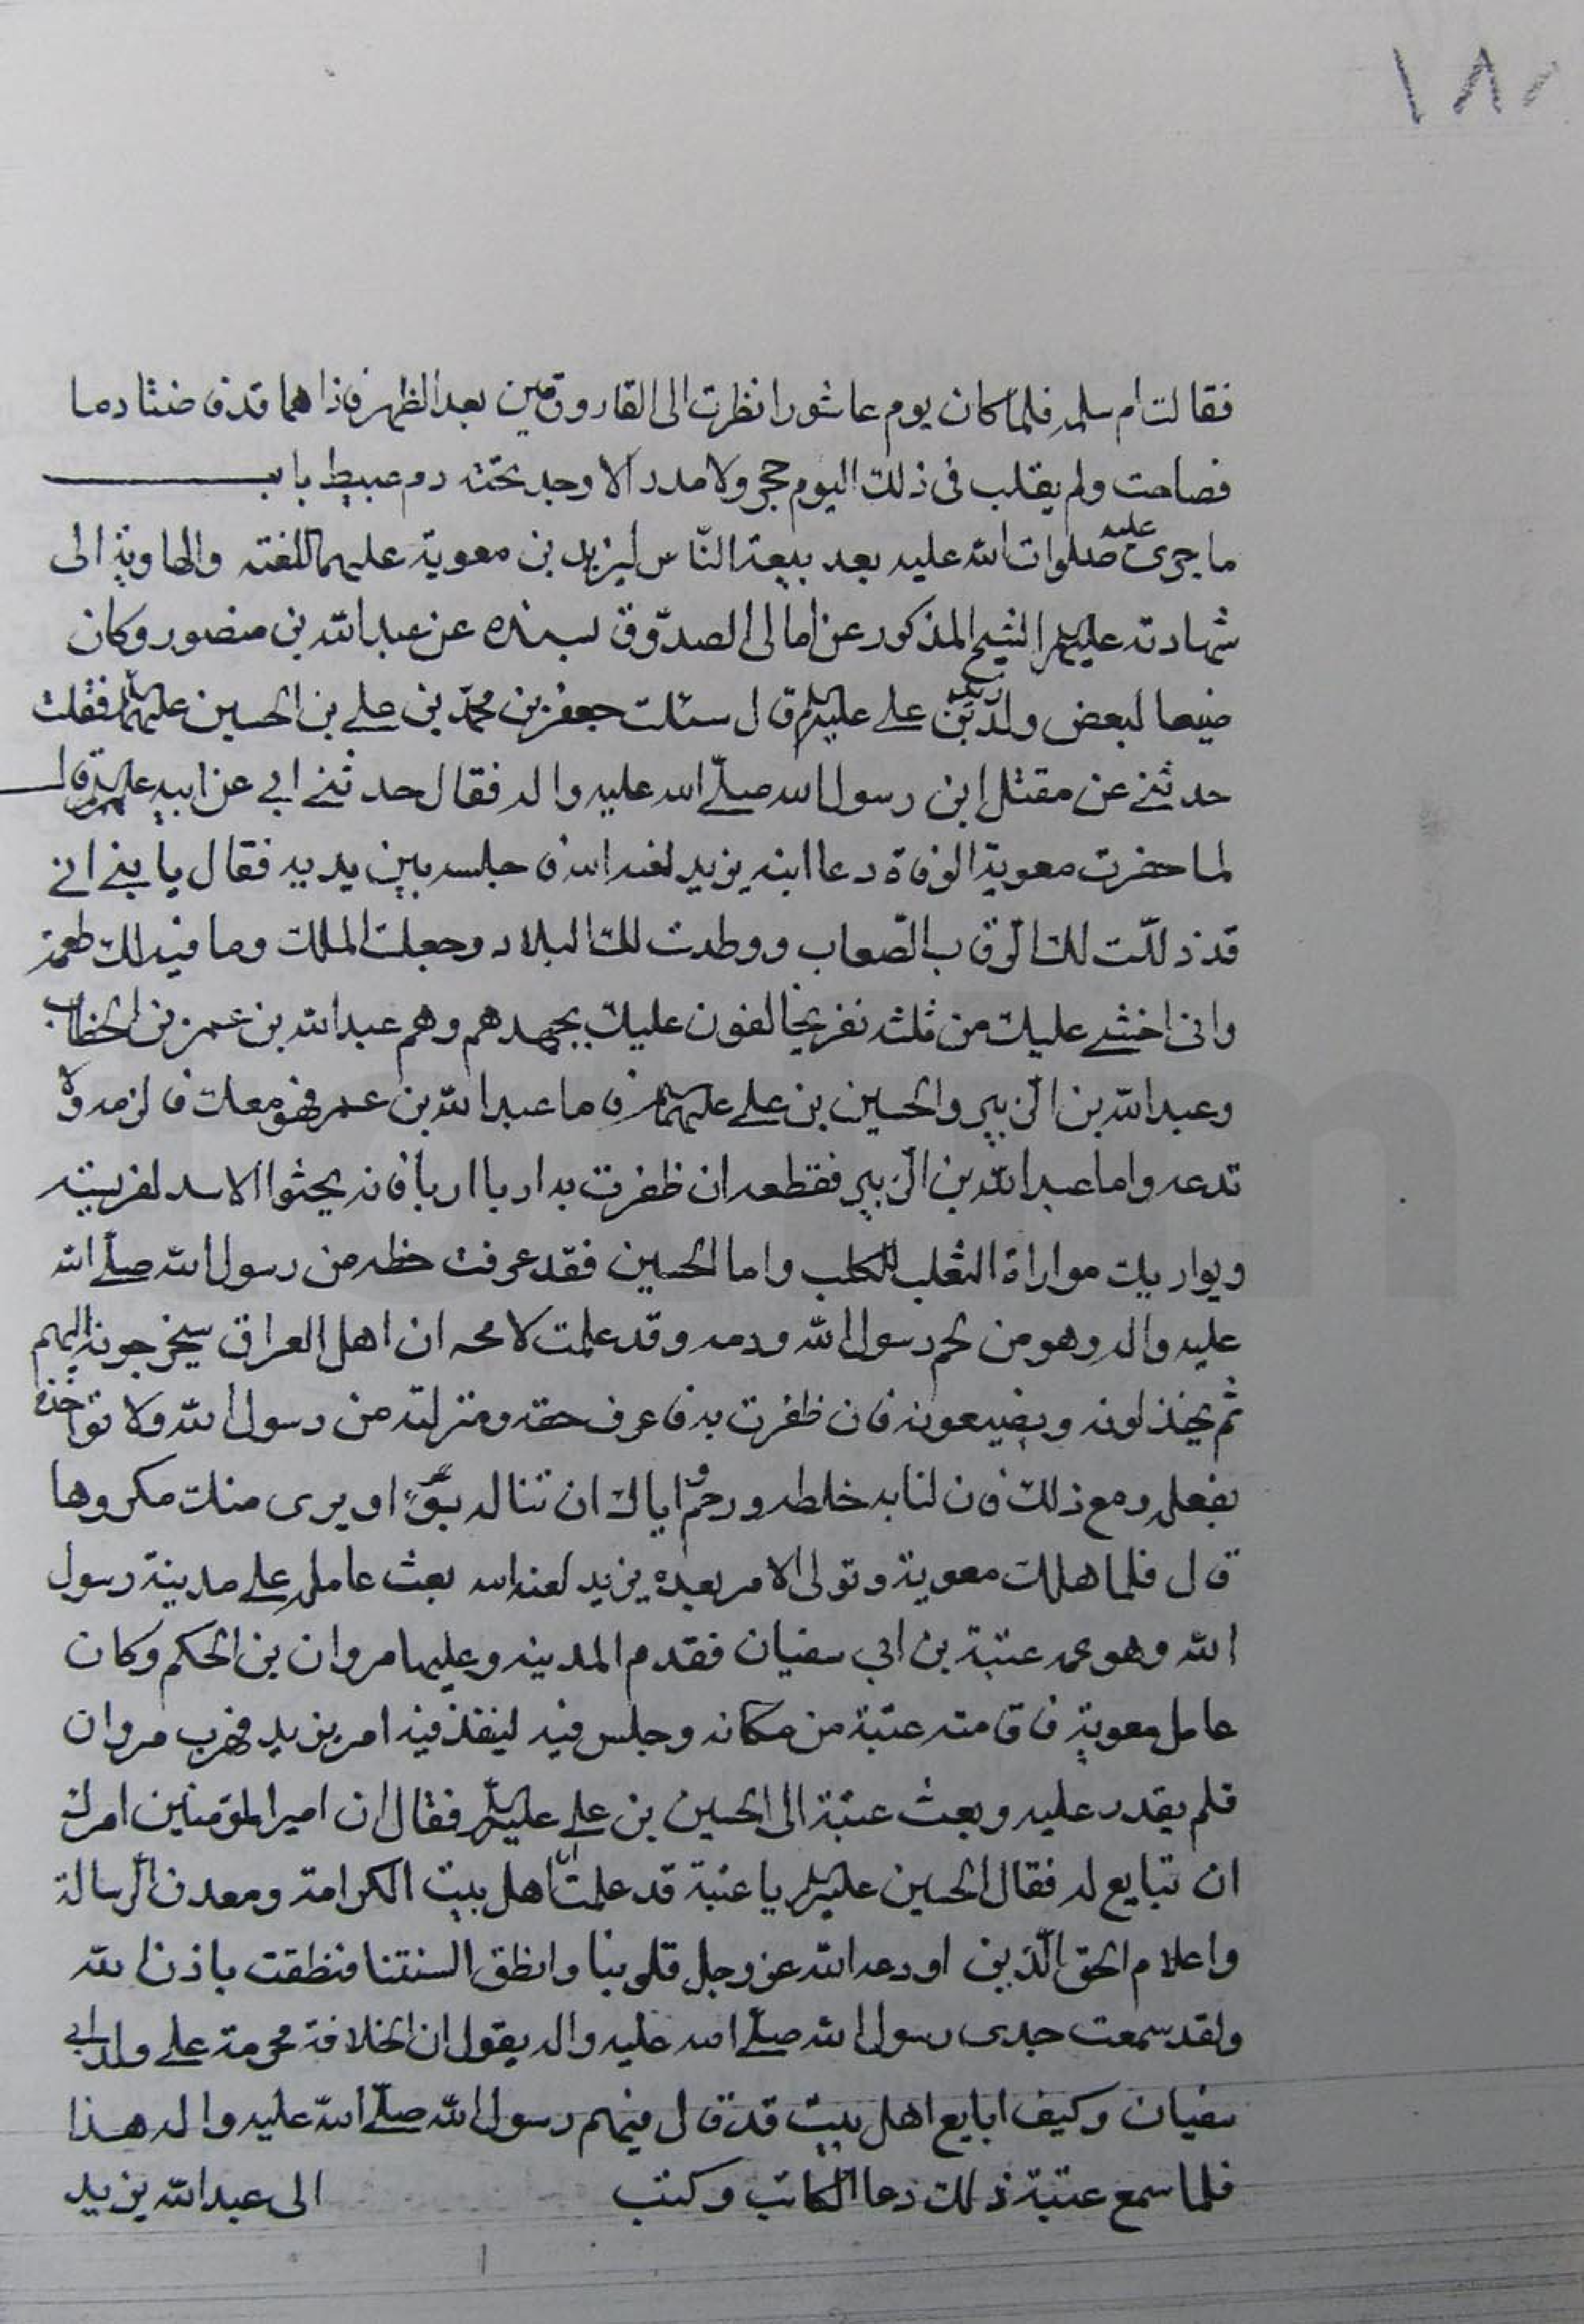 ١٨١
فقالت ام سلمه فلما كان يوم عاشورا نظرت الى القارورتين بعد الظهر فاذا هما قد فاضتا دما
فصاحت ولم يقلب فى ذلك اليوم حجر ولا مدر الا وجد تحته دم عبيط باب
ما جرى عليه صلوات الله عليه بعد بيعة الناس ليزيد بن معوية عليهما اللعنه والهاوية الى
شهادته عليه السلم الشيخ المذكور عن امالى الصدوق بسنده عن عبدالله بن منصور وكان
رضيعا لبعض ولد زيد بن على عليه السلم قال سئلت جعفر بن محمد بن على بن الحسين عليهما السلم فقلت
حدثنى عن مقتل ابن رسول الله صلى الله عليه واله فقال حدثنى ابى عن ابيه عليهم السلم قال
لما حضرت معوية الوفاة دعا ابنه يزيد لعنه الله فاجلسه بين يديه فقال يا بنى انى
قد ذللت لك الرقاب الصعاب ووطدت لك البلاد وجعلت الملك وما فيه لك طعمة
وانى اخشى عليك من ثلثه نفر يخالفون عليك بجهدهم وهم عبدالله بن عمر بن الخطاب
وعبدالله بن الزبير والحسين بن على عليهما السلم فاما عبدالله بن عمر فهو معك فالزمه ولا
تدعه واما عبدالله بن الزبير فقطعه ان ظفرت به اربا اربا فانه يجثوا الاسد لفريسته
ويواريك مواراة الثعلب للكلب واما الحسين فقد عرفت حظه من رسول الله صلى الله
عليه واله وهو من لحم رسول الله ودمه وقد علمت لا محه ان اهل العراق سيخرجونه اليهم
ثم يخذلونه ويضيعونه فان ظفرت به فاعرف حقه ومنزلته من رسول الله ولا تواخذه
بفعله ومع ذلك فان لنا به خلطه ورحم واياك ان تناله بسوء او يرى منك مكروها
قال فلما هلك معوية وتولى الامر بعده يزيد لعنه الله بعث عامله على مدينة رسول
الله وهو عمه عتبة بن ابي سفيان فقدم المدينه وعليها مروان بن الحكم وكان
عامل معوية فاقامه عتبة من مكانه وجلس فيه لينفذ فيه امر يزيد فهرب مروان
فلم يقدر عليه وبعث عتبة الى الحسين بن على عليه السلم فقال ان امير المؤمنين امرك
ان تبايع له فقال الحسين عليه السلم يا عتبة قد علمت انا اهل بيت الكرامة ومعدن الرسالة
واعلام الحق الذين اودعه الله عز وجل قلوبنا وانطق السنتنا فنطقت باذن الله
ولقد سمعت جدى رسول الله صلى الله عليه واله يقول ان الخلافة محرمة على ولد ابى
سفيان وكيف ابايع اهل بيت قد قال فيهم رسول الله صلى الله عليه واله هذا
فلما سمع عتبة ذلك دعا الكاتب وكتب الى عبدالله يزيد